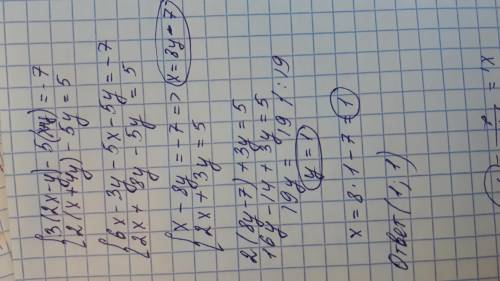 {3(2x-y) - 5(x+y) = -7
{2(x+4y) - 5y = 5
{6x - 3y - 5x - 5y = -7
{2x + 8y - 5y = 5
{x - 8y = -7 => x = 8y - 7
{2x + 3y = 5
2(8y-7) + 3y = 5
16y - 14 + 3y = 5
19y = 19 | : 19
y = 1
x = 8 · 1 - 7 = 1
Ответ (1, 1)